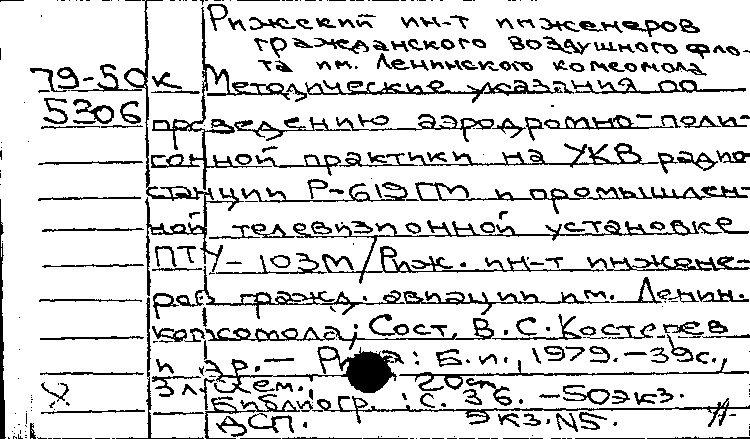 Рижский ин-т инженеров
гражданского воздушного фло-
та им. Ленинского комсомола
79-50к Методические указания по
5306 проведению аэродромно-поли-
гонной практики на УКВ радио
станции Р-619ГМ и промышлен-
ной телевизионной установке
ПТУ-103М/Риж. ин-т инжене-
ров гражд. авиации им. Ленин.
комсомола; Сост. В.С.Костерев
и др.— Рига: Б.и., 1979.-39с.,
3л.схем.; 20см
Библиогр.: с. 36. -50экз.
ДСП. экз.N5.